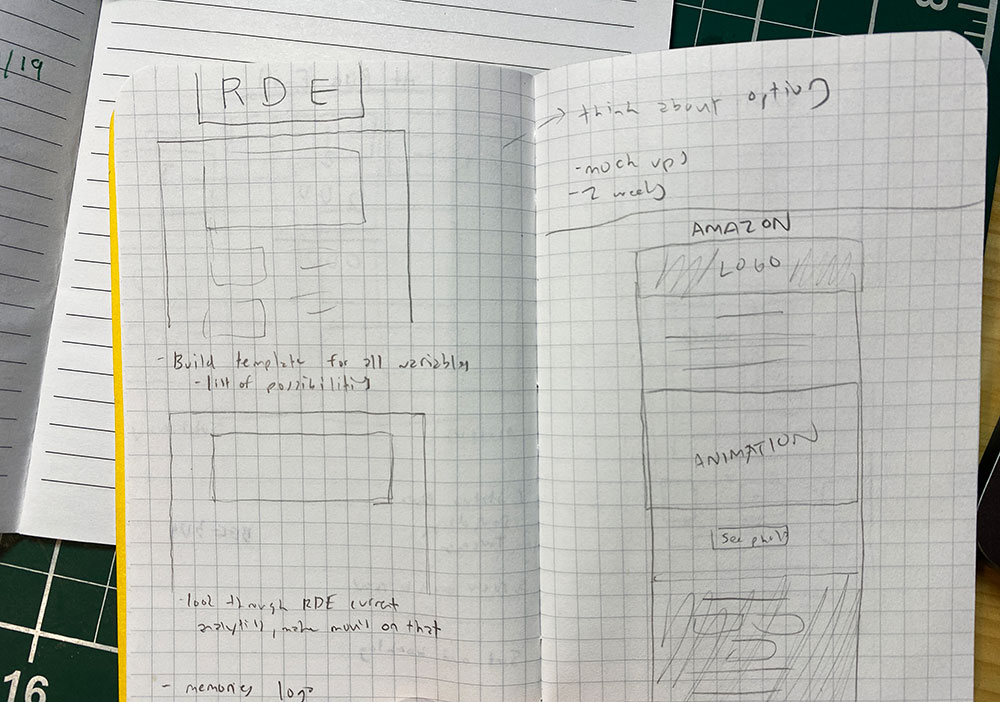 /19
RDE
- Build template for all variables
- list of possibilities
- look through RDE current
analytics, make movie on that
- memories logo
→ think about
- mock ups
- 2 weeks
AMAZON
LOGO
ANIMATION
See photo
16